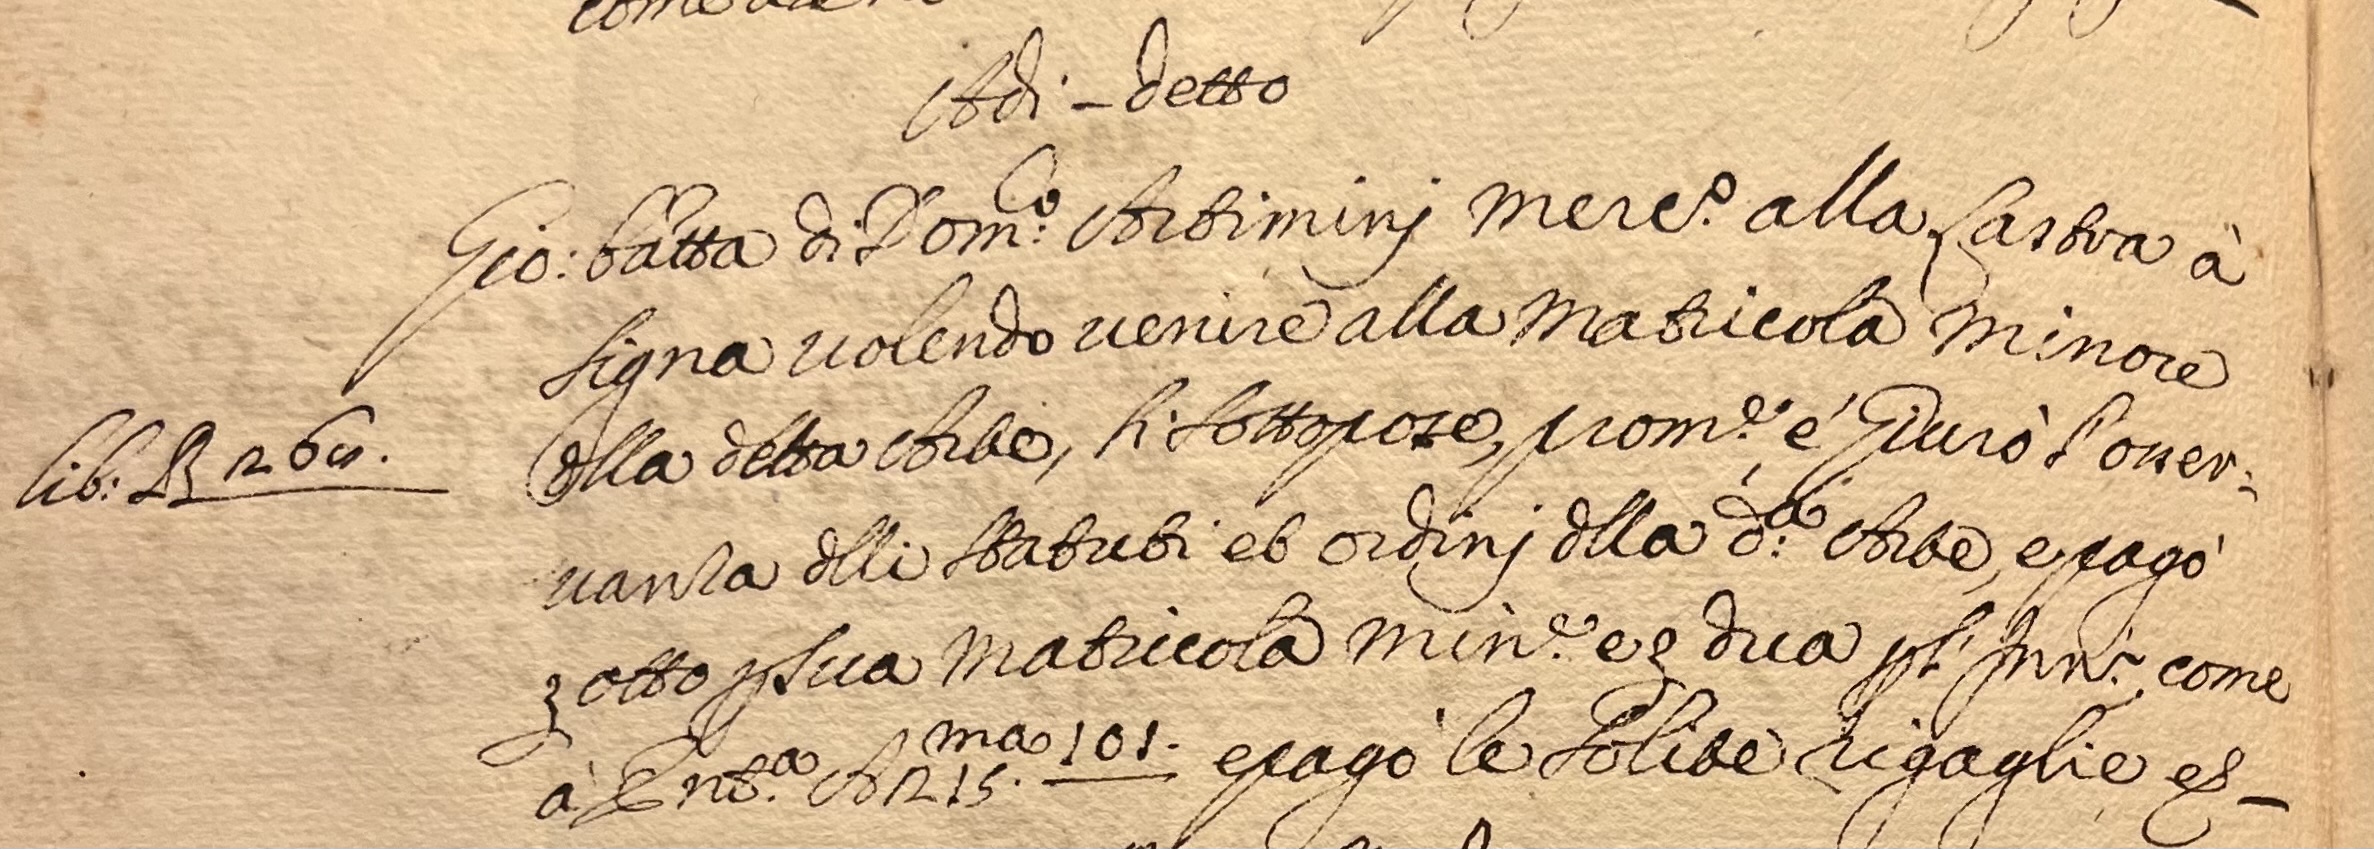 Adi - detto
Gio: batta di Dom.co Artiminj Merc.o alla Lastra à
Signa uolendo uenire alla Matricola Minore
dlla detta Arte, si sottopose, prom.e é Giurò l'osser=
lib: B 26
uanza dlli Statuti et ordinj dlla d.a Arte, e pagò
otto p sua Matricola Min.e e due p come
à Entr.a A 215. ma 101. e pagò le solite rigaglie et -